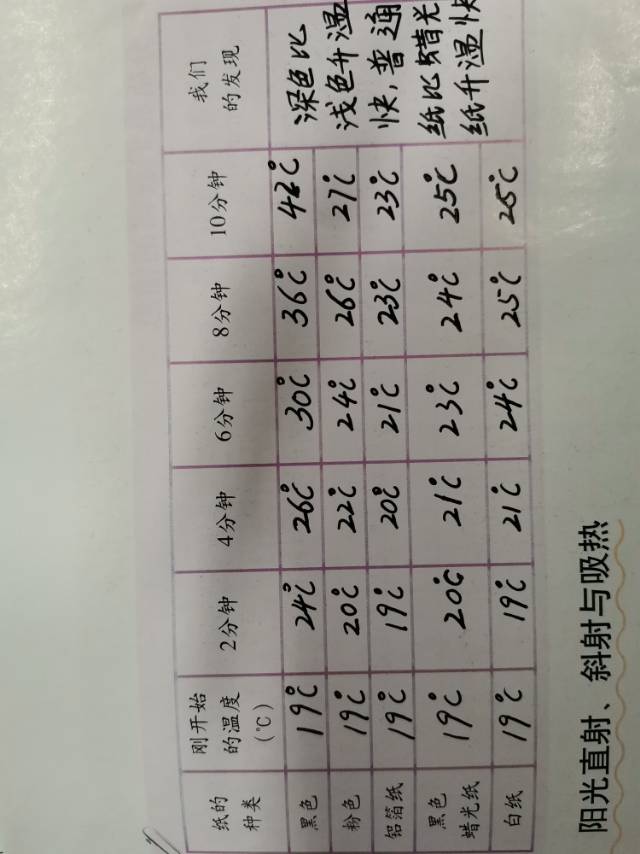 纸的种类 刚开始的温度(℃) 2分钟 4分钟 6分钟 8分钟 10分钟 我们的发现
黑色 19℃ 24℃ 26℃ 30℃ 36℃ 42℃ 深色比
粉色 19℃ 20℃ 22℃ 24℃ 26℃ 27℃ 浅色升温
铝箔纸 19℃ 19℃ 20℃ 21℃ 23℃ 23℃ 快,普通
黑色蜡光纸 19℃ 20℃ 21℃ 23℃ 24℃ 25℃ 纸比蜡光
白纸 19℃ 19℃ 21℃ 24℃ 25℃ 25℃ 纸升温快
阳光直射、斜射与吸热